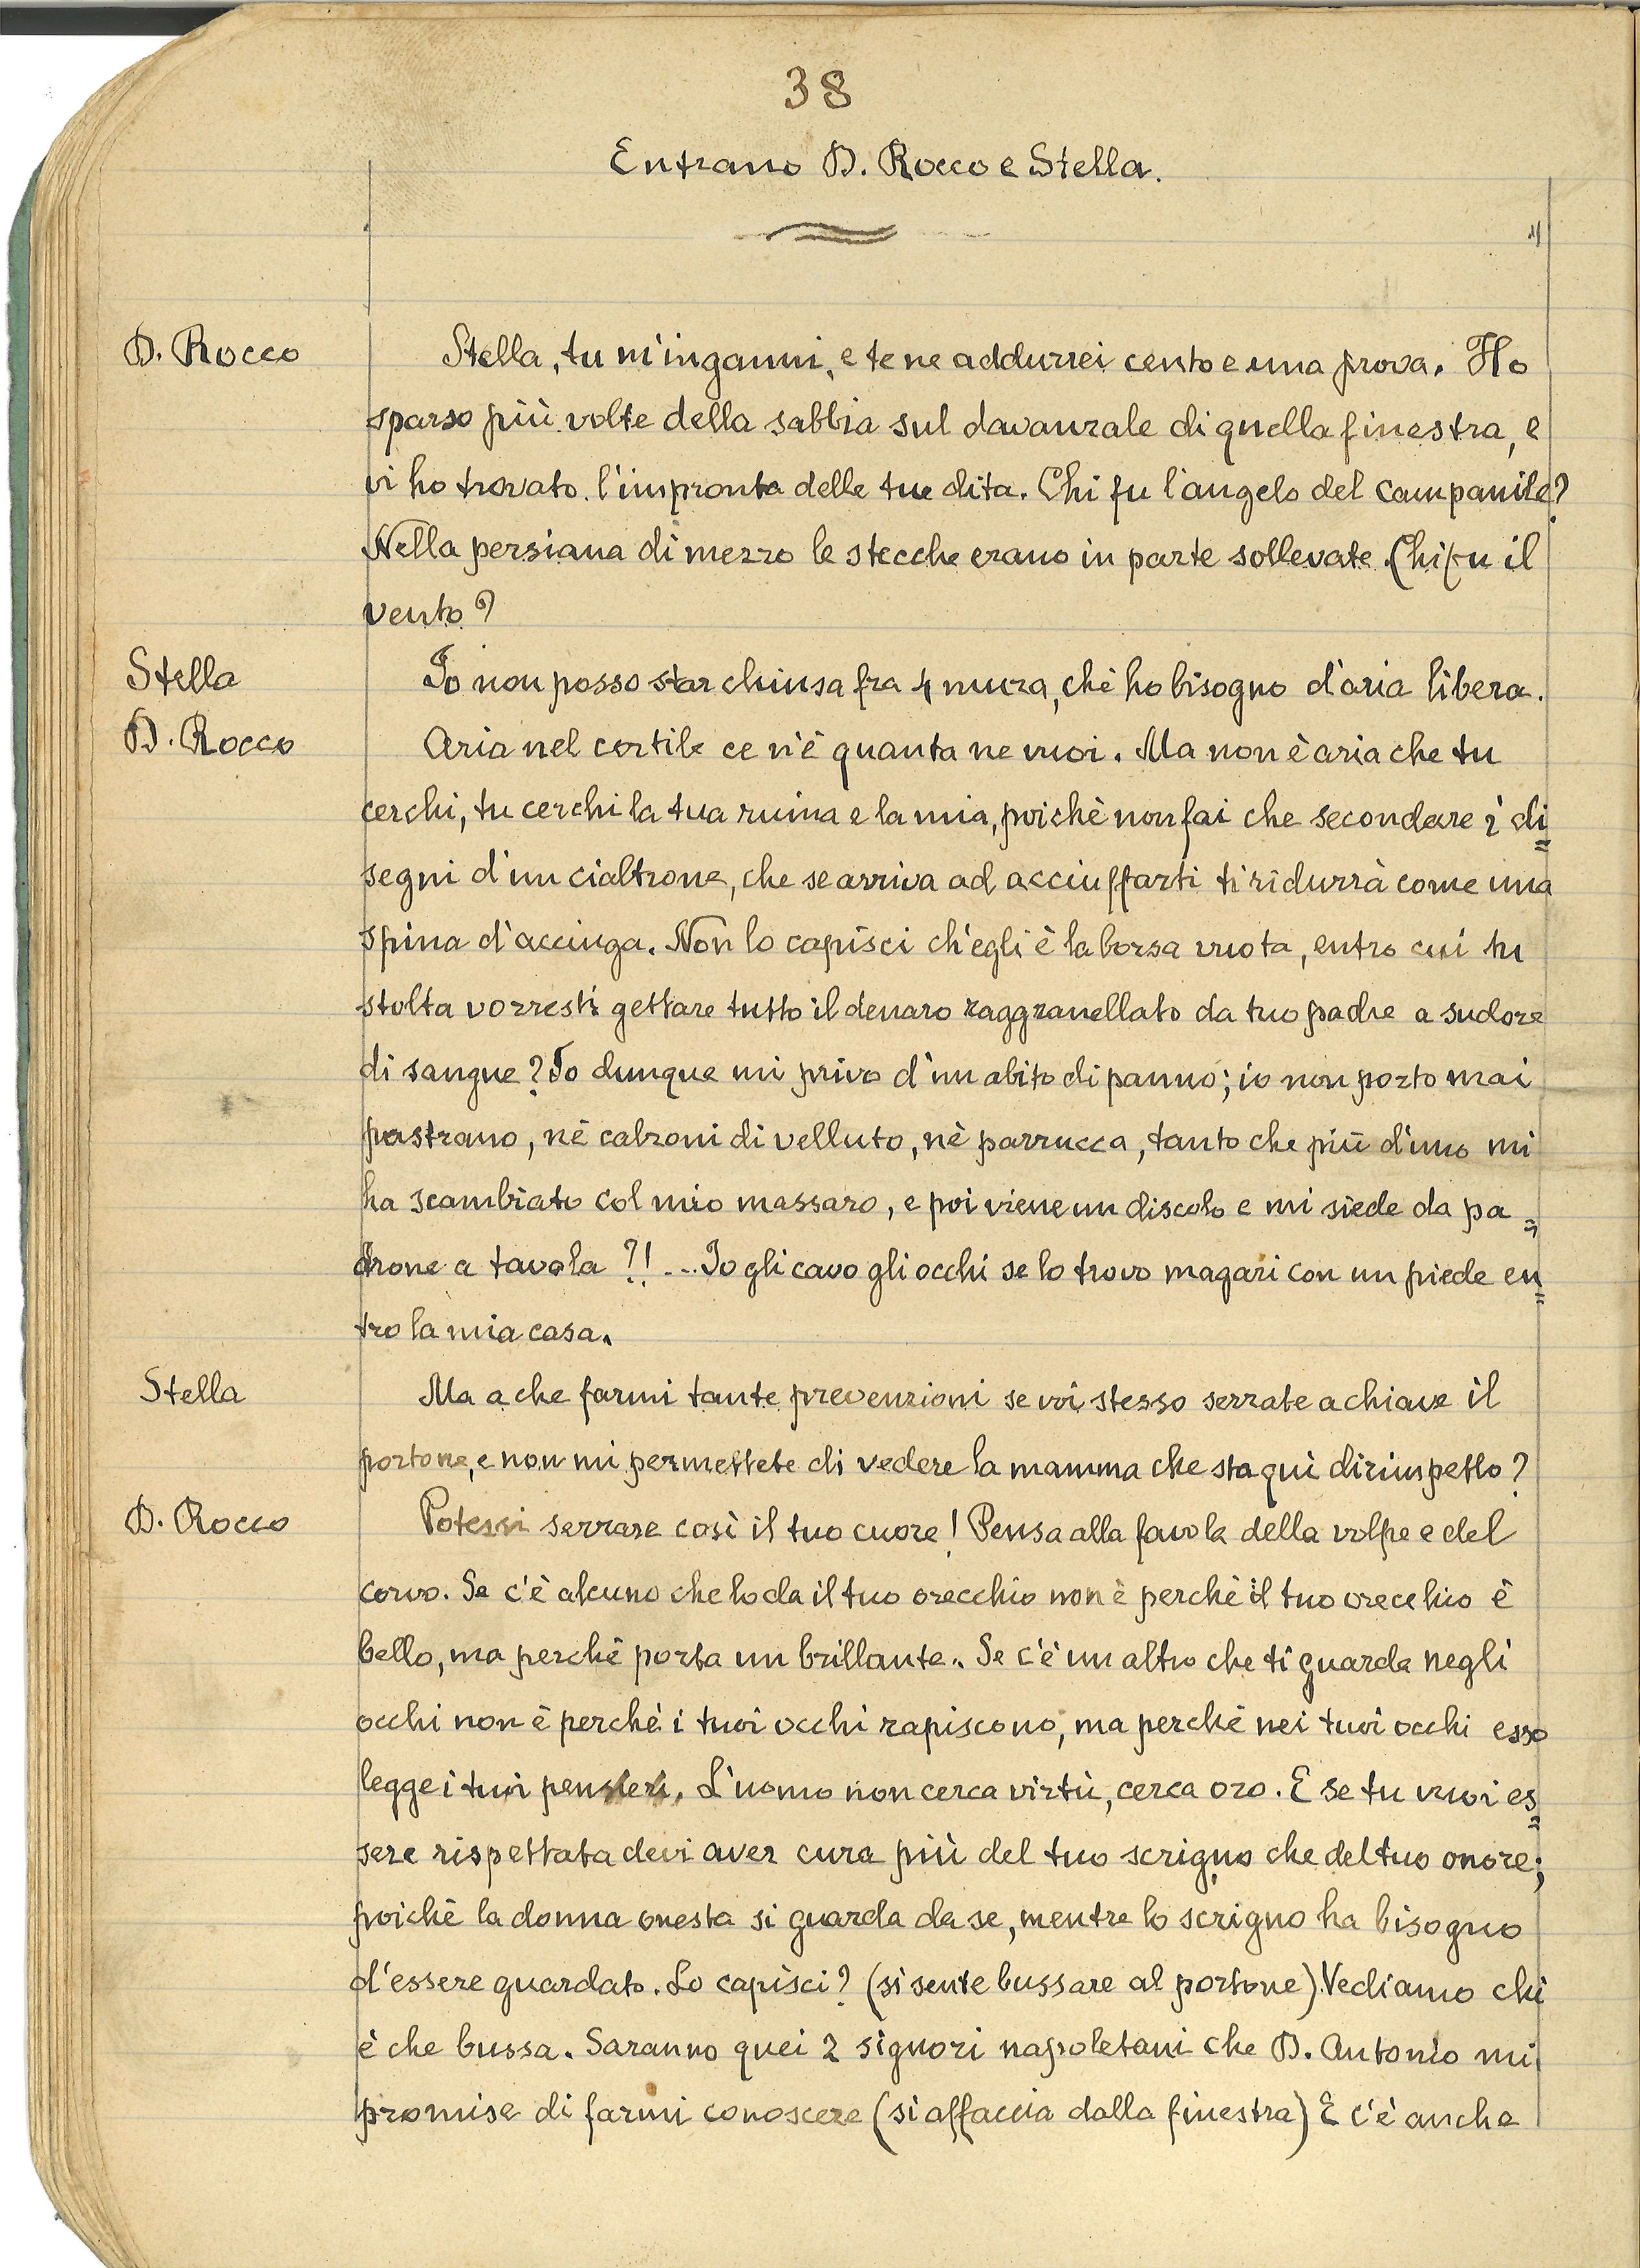 38
Entrano D. Rocco e Stella.
D. Rocco Stella, tu m'inganni, e te ne addurrei cento e una prova. Ho
sparso più volte della sabbia sul davanzale di quella finestra, e
vi ho trovato l'impronta delle tue dita. Chi fu l'angelo del campanile?
Nella persiana di mezzo le stecche erano in parte sollevate. Chi fu il
vento?
Stella Io non posso star chiusa fra 4 mura, chè ho bisogno d'aria libera.
D. Rocco Aria nel cortile ce n'è quanta ne vuoi. Ma non è aria che tu
cerchi, tu cerchi la tua ruina e la mia, poichè non fai che secondare i di=
segni d'un cialtrone, che se arriva ad acciuffarti ti ridurrà come una
spina d'acciuga. Non lo capisci ch'egli è la borsa vuota, entro cui tu
stolta vorresti gettare tutto il denaro raggranellato da tuo padre a sudore
di sangue? Io dunque mi privo d'un abito di panno; io non porto mai
pastrano, nè calzoni di velluto, nè parrucca, tanto che più d'uno mi
ha scambiato col mio massaro, e poi viene un discolo e mi siede da pa=
drone a tavola?!... Io gli cavo gli occhi se lo trovo magari con un piede en=
tro la mia casa.
Stella Ma a che farmi tante prevenzioni se voi stesso serrate a chiave il
portone, e non mi permettete di vedere la mamma che sta qui dirimpetto?
D. Rocco Potessi serrare così il tuo cuore! Pensa alla favola della volpe e del
corvo. Se c'è alcuno che loda il tuo orecchio non è perchè il tuo orecchio è
bello, ma perchè porta un brillante. Se c'è un altro che ti guarda negli
occhi non è perchè i tuoi occhi rapiscono, ma perchè nei tuoi occhi esso
legge i tuoi pensieri. L'uomo non cerca virtù, cerca oro. E se tu vuoi es=
sere rispettata devi aver cura più del tuo scrigno che del tuo onore;
poichè la donna onesta si guarda da se, mentre lo scrigno ha bisogno
d'essere guardato. Lo capisci? (si sente bussare al portone). Vediamo chi
è che bussa. Saranno quei 2 signori napoletani che D. Antonio mi
promise di farmi conoscere (si affaccia dalla finestra) E c'è anche